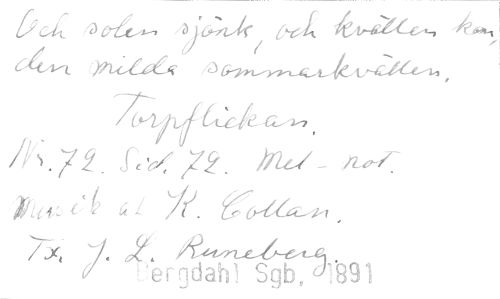 Och solen sjönk, och kvällen kom,
den milda sommarkvällen.
Torpflickan.
Nr. 72. Sid. 72. Mel-not.
Musik av K. Collan.
Tx. J. L. Runeberg.
Bergdahl Sgb. 1891